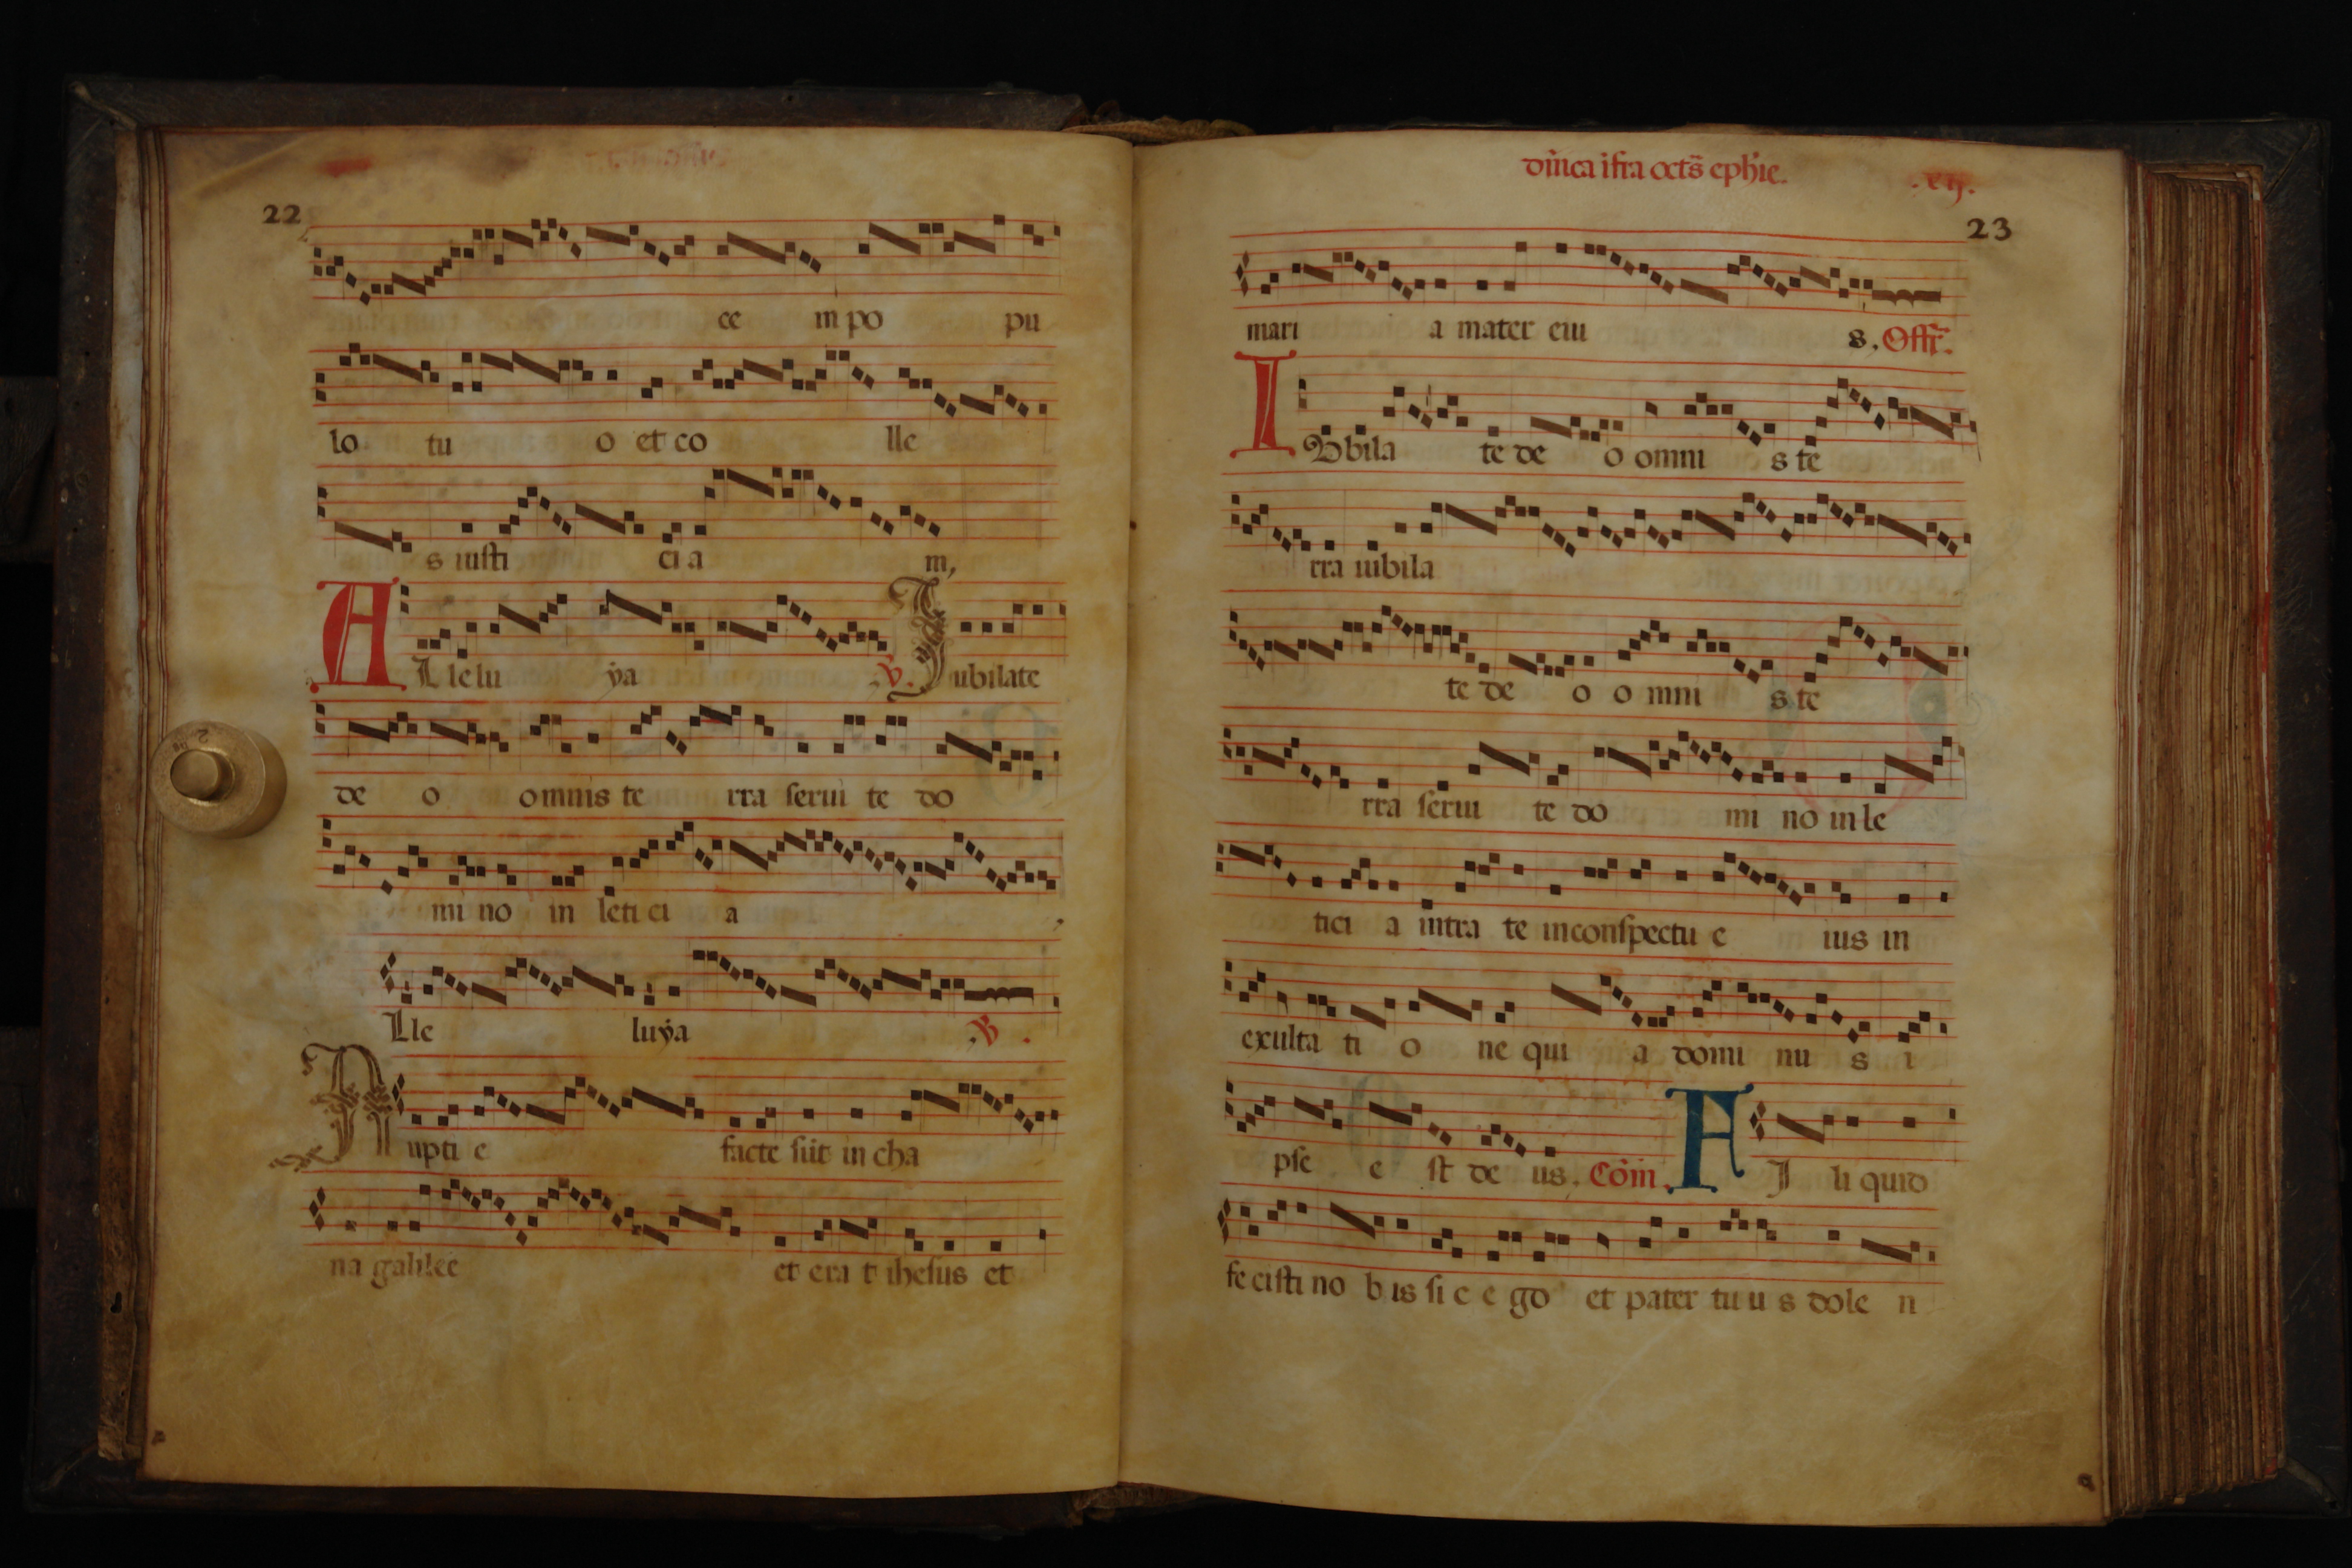 22
ce m po pu
lo tu o et co lle
s iusti ci a m,
A Llelu ÿa ℣. Jubilate
de o omnis te rra serui te do
mi no in leti ci a ,
Lle luÿa ,℣.
Nupti e facte sūt in cha
na galilee et era t ihesus et
dn̄ica īfra octs̄ ephīe. .xij.
23
mari a mater eiu s. Offr̄.
IUbila te de o omni s te
rra iubila
te de o o mni s te
rra serui te do mi no in le
tici a intra te inconspectu e ius in
exulta ti o ne qui a domi nu s i
pse e st de us. Cōm. FI li quid
fecisti no b is si c e go et pater tu u s dole n